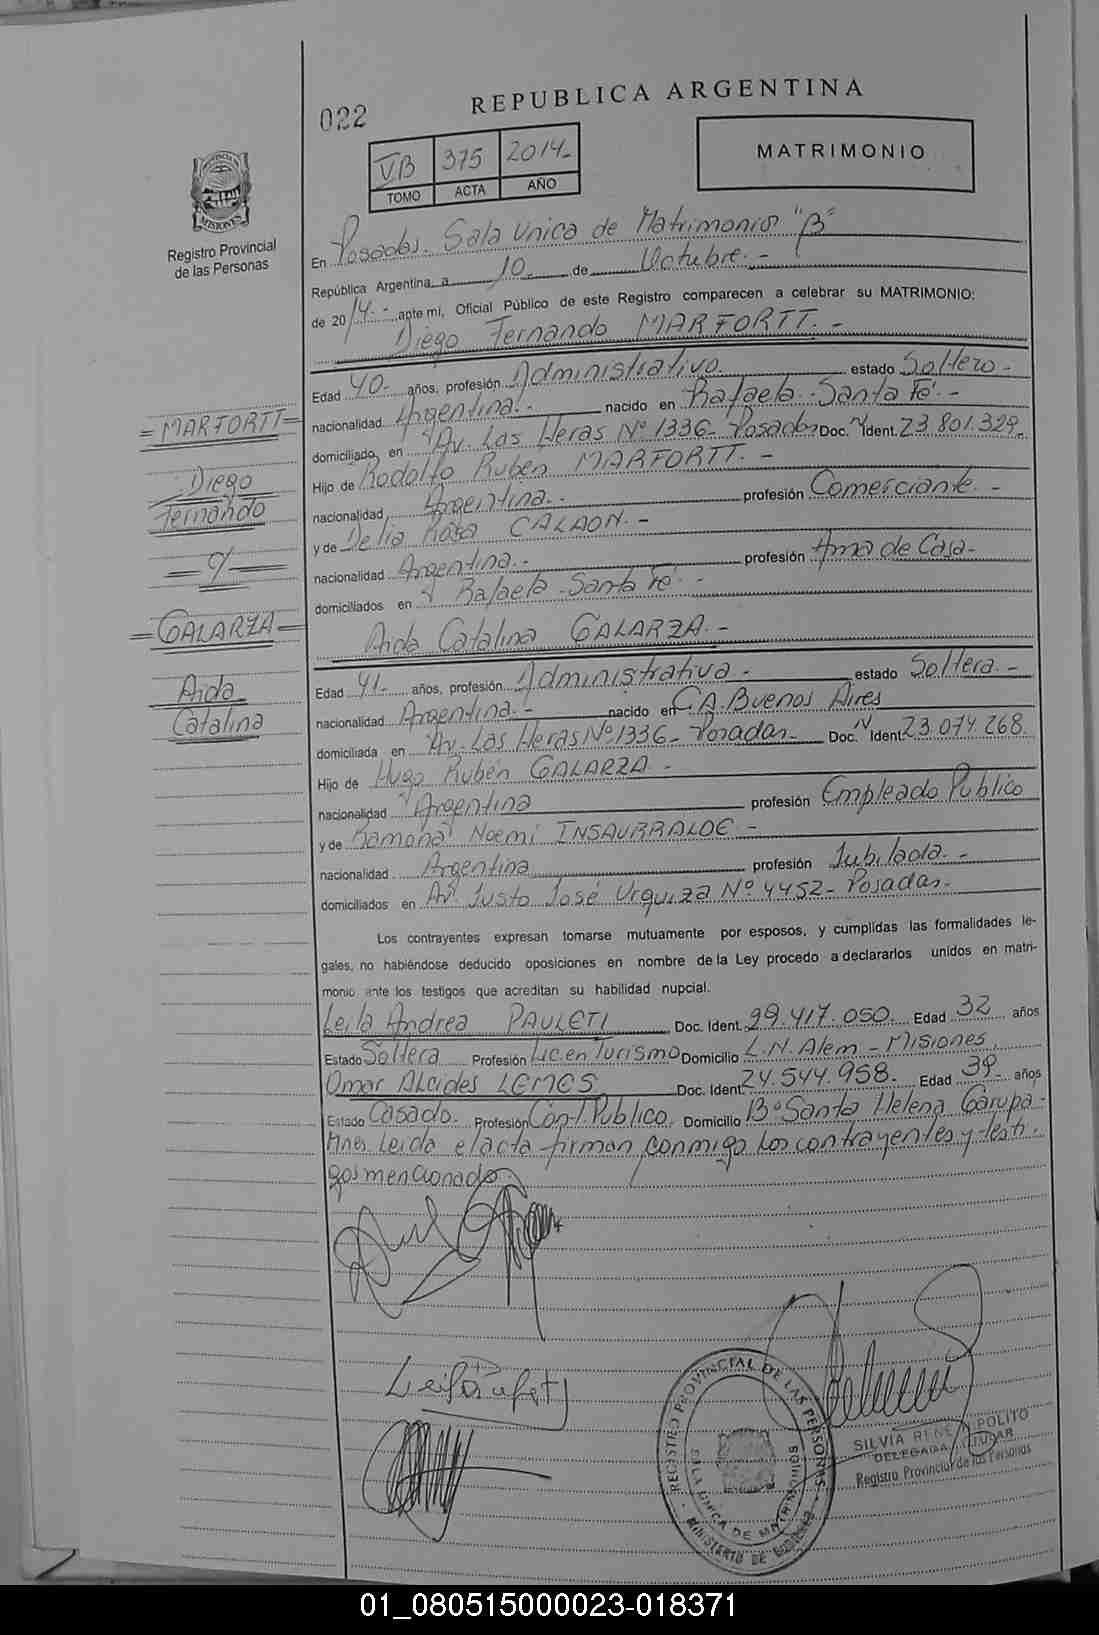 022
REPUBLICA ARGENTINA
VB 375 2014-
TOMO ACTA AÑO
MATRIMONIO
PROVINCIA
MISIONES
Registro Provincial
de las Personas
En Posadas. Sala Unica de Matrimonios "B"
República Argentina, a 10 de Octubre.-
de 2014.- ante mí, Oficial Público de este Registro comparecen a celebrar su MATRIMONIO:
Diego Fernando MARFORTT.-
Edad 40- años, profesión Administrativo. estado Soltero-
nacionalidad Argentina.- nacido en Rafaela-Santa Fé.-
domiciliado en Av. Las Heras Nº 1336- Posadas Doc. N Ident. 23.801.329-
Hijo de Rodolfo Ruben MARFORTT.-
nacionalidad Argentina.- profesión Comerciante.-
y de Delia Rosa CALAON.-
nacionalidad Argentina.- profesión Ama de Casa-
domiciliados en Rafaela-Santa Fé.-
=MARFORTT=
Diego
Fernando
GALARZA
Aida
Catalina
Aida Catalina GALARZA.-
Edad 41- años, profesión Administrativa.- estado Soltera-
nacionalidad Argentina.- nacido en C.A.Buenos Aires
domiciliada en Av. Las Heras Nº1336- Posadas- Doc. N Ident 23.074.268.
Hijo de Hugo Rubén GALARZA-
nacionalidad Argentina profesión Empleado Publico
y de Ramona Noemi INSAURRALDE-
nacionalidad Argentina profesión Jubilada.-
domiciliados en Av. Justo José Urquiza Nº 4452- Posadas.
Los contrayentes expresan tomarse mutuamente por esposos, y cumplidas las formalidades le-
gales, no habiéndose deducido oposiciones en nombre de la Ley procedo a declararlos unidos en matri-
monio ante los testigos que acreditan su habilidad nupcial.
Leila Andrea PAULETI Doc. Ident. 29.417.050. Edad 32 años
Estado Soltera Profesión Lic.en Turismo Domicilio L.N.Alem-Misiones
Omar Alcides LEMES Doc. Ident 24.544.958. Edad 39 años
Estado Casado. Profesión Cont.Publico. Domicilio Bº Santa Helena Garupa-
Mnes. Leida el acta firman conmigo los contrayentes y testi-
gos mencionados.
REGISTRO PROVINCIAL DE LAS PERSONAS
SALA UNICA DE MATRIMONIOS
MINISTERIO DE GOBIERNO
SILVIA POLITO
DELEGADA TITULAR
Registro Provincial de las Personas
01_080515000023-018371